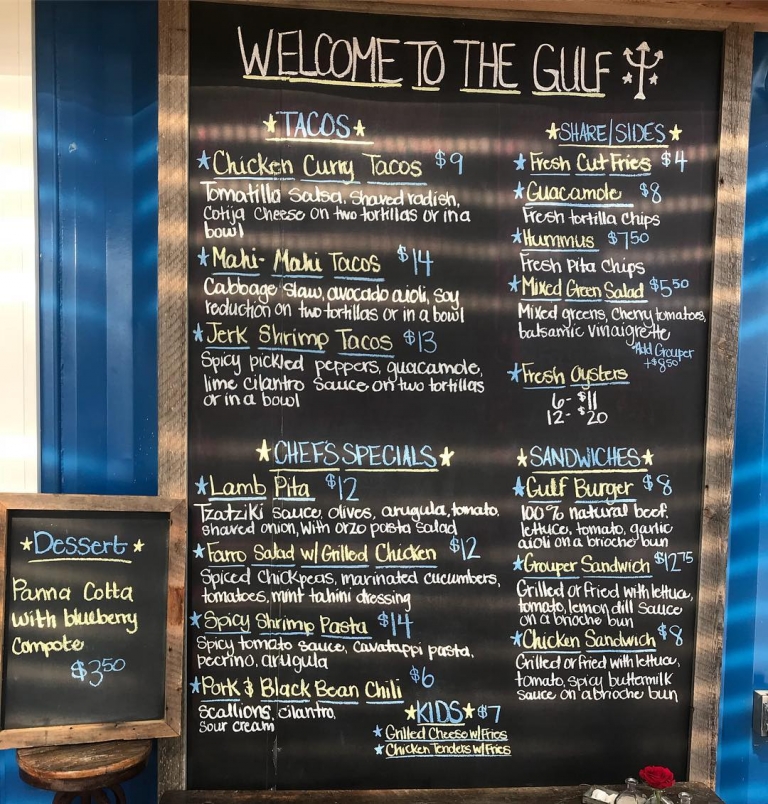 WELCOME TO THE GULF
TACOS
Chicken Curry Tacos $9
Tomatilla Salsa, Shaved radish,
Cotija Cheese on two tortillas or in a
bowl
Mahi-Mahi Tacos $14
Cabbage slaw, avocado aioli, soy
reduction on two tortillas or in a bowl
Jerk Shrimp Tacos $13
Spicy pickled peppers, guacamole,
lime cilantro sauce on two tortillas
or in a bowl
SHARE/SIDES
Fresh Cut Fries $4
Guacamole $8
Fresh tortilla chips
Hummus $7.50
Fresh Pita Chips
Mixed Green Salad $5.50
Mixed greens, cherry tomatoes,
balsamic vinaigrette
Add Grouper
+$8.50
Fresh Oysters
6- $11
12- $20
CHEF'S SPECIALS
Lamb Pita $12
Tzatziki sauce, olives, arugula, tomato,
shaved onion, with orzo pasta salad
Farro Salad w/ Grilled Chicken $12
Spiced Chickpeas, marinated cucumbers,
tomatoes, mint tahini dressing
Spicy Shrimp Pasta $14
Spicy tomato sauce, cavatappi pasta,
pecrino, arugula
Pork & Black Bean Chili $6
Scallions, cilantro,
sour cream
SANDWICHES
Gulf Burger $8
100% natural beef,
lettuce, tomato, garlic
aioli on a brioche bun
Grouper Sandwich $12.75
Grilled or fried with lettuce,
tomato, lemon dill sauce
on a brioche bun
Chicken Sandwich $8
Grilled or fried with lettuce,
tomato, spicy buttermilk
sauce on a brioche bun
KIDS $7
Grilled Cheese w/Fries
Chicken Tenders w/Fries
Dessert
Panna Cotta
with blueberry
Compote
$3.50